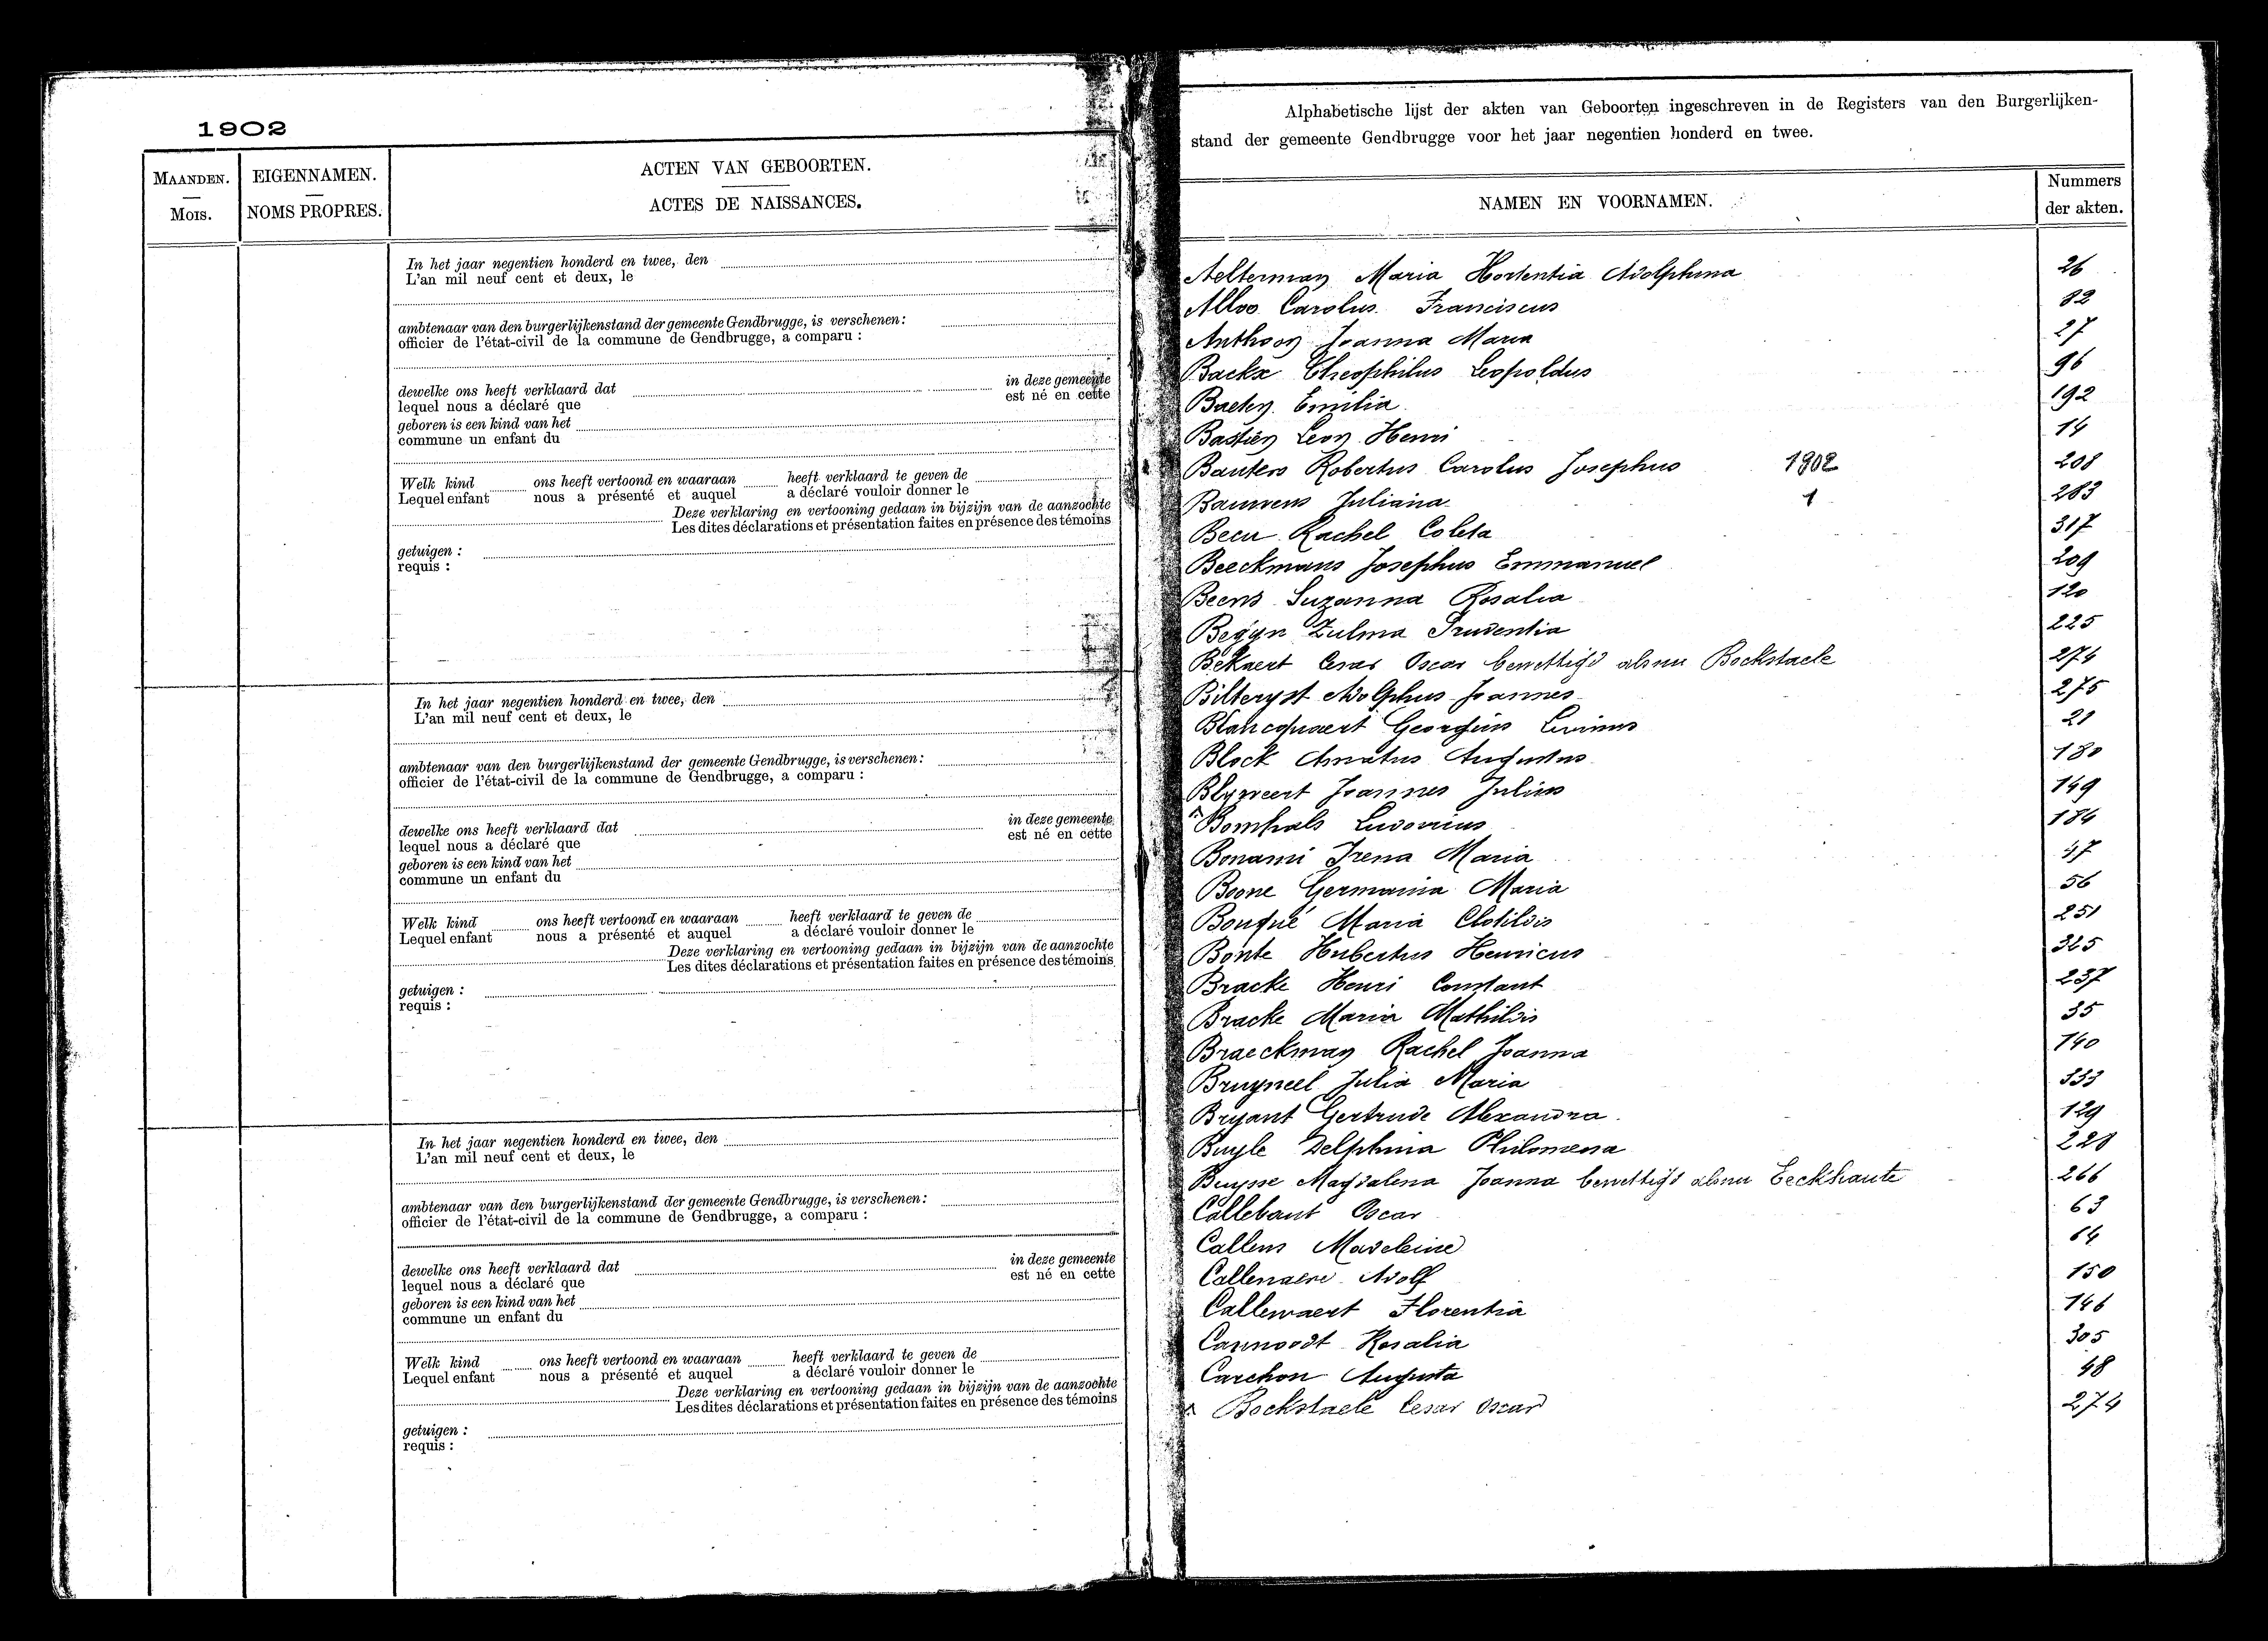 1902
MAANDEN.
Mois.
EIGENNAMEN.
NOMS PROPRES.
ACTEN VAN GEBOORTEN.
ACTES DE NAISSANCES.
In het jaar negentien honderd en twee, den
L'an mil neuf cent et deux, le
ambtenaar van den burgerlijkenstand der gemeente Gendbrugge, is verschenen:
officier de l'état-civil de la commune de Gendbrugge, a comparu :
dewelke ons heeft verklaard dat in deze gemeente
lequel nous a déclaré que est né en cette
geboren is een kind van het
commune un enfant du
Welk kind ons heeft vertoond en waaraan heeft verklaard te geven de
Lequel enfant nous a présenté et auquel a déclaré vouloir donner le
Deze verklaring en vertooning gedaan in bijzijn van de aanzochte
Les dites déclarations et présentation faites en présence des témoins
getuigen :
requis :
In het jaar negentien honderd en twee, den
L'an mil neuf cent et deux, le
ambtenaar van den burgerlijkenstand der gemeente Gendbrugge, is verschenen:
officier de l'état-civil de la commune de Gendbrugge, a comparu :
dewelke ons heeft verklaard dat in deze gemeente
lequel nous a déclaré que est né en cette
geboren is een kind van het
commune un enfant du
Welk kind ons heeft vertoond en waaraan heeft verklaard te geven de
Lequel enfant nous a présenté et auquel a déclaré vouloir donner le
Deze verklaring en vertooning gedaan in bijzijn van de aanzochte
Les dites déclarations et présentation faites en présence des témoins
getuigen :
requis :
In het jaar negentien honderd en twee, den
L'an mil neuf cent et deux, le
ambtenaar van den burgerlijkenstand der gemeente Gendbrugge, is verschenen:
officier de l'état-civil de la commune de Gendbrugge, a comparu :
dewelke ons heeft verklaard dat in deze gemeente
lequel nous a déclaré que est né en cette
geboren is een kind van het
commune un enfant du
Welk kind ons heeft vertoond en waaraan heeft verklaard te geven de
Lequel enfant nous a présenté et auquel a déclaré vouloir donner le
Deze verklaring en vertooning gedaan in bijzijn van de aanzochte
Les dites déclarations et présentation faites en présence des témoins
getuigen :
requis :
Alphabetische lijst der akten van Geboorten ingeschreven in de Registers van den Burgerlijken-
stand der gemeente Gendbrugge voor het jaar negentien honderd en twee.
NAMEN EN VOORNAMEN.
Nummers
der akten.
Aelterman Maria Hortentia Adolphina 26
Alloo Carolus Franciscus 82
Anthoon Joanna Maria 27
Backx Theophilus Leopoldus 96
Baeten Emilia 192
Bastien Leon Henri 14
Bauters Robertus Carolus Josephus 1902 208
Bauwens Juliana 1 283
Becu Rachel Coleta 317
Beeckmans Josephus Emmanuel 209
Beens Suzanna Rosalia 120
Begyn Zulma Prudentia 225
Bekaert Cesar Oscar bewettigd alsnu Bockstaele 274
Bilteryst Adolphus Joannes 275
Blancquaert Georgius Livinus 21
Block Amatus Augustus 180
Blyweert Joannes Julius 149
Bomhals Ludovicus 184
Bonami Irena Maria 47
Boone Germania Maria 56
Bouqué Maria Clotildis 251
Bonte Hubertus Henricus 325
Bracke Henri Constant 237
Bracke Maria Mathildis 35
Braeckman Rachel Joanna 140
Bruyneel Julia Maria 333
Bryant Gertrude Alexandra 129
Buyle Delphina Philomena 228
Buysse Magdalena Joanna bewettigd alsnu Eeckhaute 266
Callebaut Oscar 63
Callens Madeleine 64
Callenaere Adolf 150
Callewaert Florentia 146
Cannoodt Rosalia 305
Carchon Augusta 48
Bockstaele Cesar Oscar 274